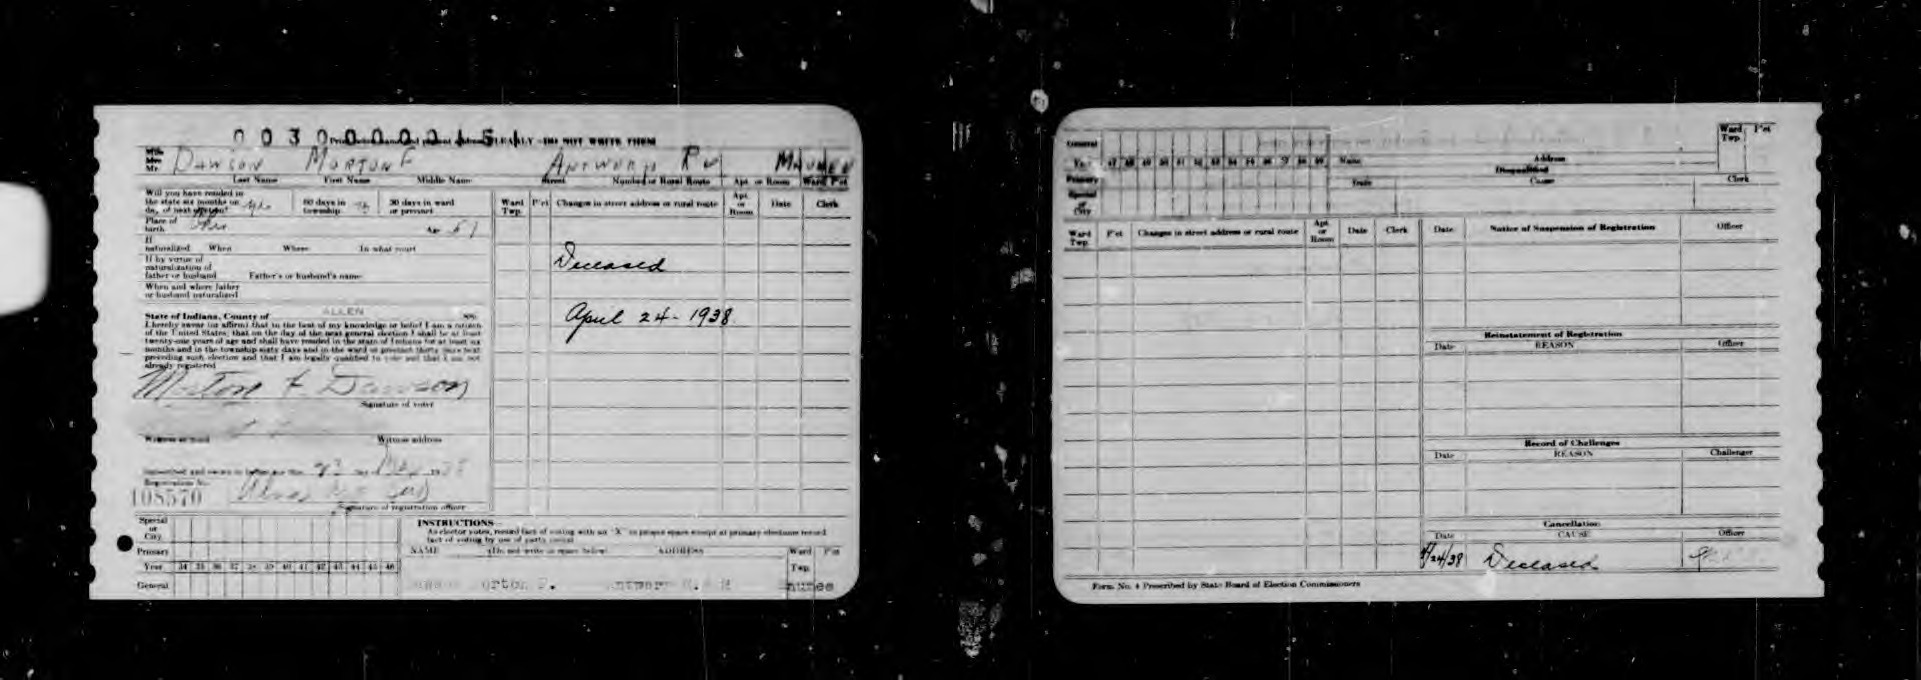 0030000151
LEARLY DO NOT WRITE THEM
Miss
Mrs.
Mr.
DAWSON MORTON F ANTWERP MAUMEE
Last Name First Name Middle Name Street Number or Rural Route Apt. or Room Ward P'ct
Will you have resided in
the state six months on
da. of next election? yes
60 days in
township
30 days in ward
or precinct
Place of
birth
Age 51
If
naturalized When Where In what court
If by virtue of
naturalization of
father or husband Father's or husband's name
When and where father
or husband naturalized
State of Indiana, County of ALLEN SS:
I hereby swear (or affirm) that to the best of my knowledge or belief I am a citizen
of the United States; that on the day of the next general election I shall be at least
twenty-one years of age and shall have resided in the state of Indiana for at least six
months and in the township sixty days and in the ward or precinct thirty days next
preceding such election and that I am legally qualified to vote and that I am not
already registered
Morton F Dawson
Signature of voter
Witness address
Registration No.
108570
Signature of registration officer
Ward
Twp. P'ct Changes in street address or rural route Apt.
or
Room Date Clerk
Deceased
April 24 - 1938
Special
or
City
Primary
Year 34 35 36 37 38 39 40 41 42 43 44 45 46
General
INSTRUCTIONS
As elector votes, record fact of voting with an "X" in proper space except at primary elections record
fact of voting by use of party initial
NAME (Do not write in space below) ADDRESS Ward P'ct
Twp.
orton F.
General
Yr. 47 48 49 50 51 52 53 54 55 56 57 58 59
Primary
Special
or
City
Name Address
Disqualified
Date Cause Clerk
Ward
Twp. P'ct
Ward
Twp. P'ct Changes in street address or rural route Apt.
or
Room Date Clerk
Date Notice of Suspension of Registration Officer
Reinstatement of Registration
Date REASON Officer
Record of Challenges
Date REASON Challenger
Cancellation
Date CAUSE Officer
4/24/38 Deceased
Form No. 4 Prescribed by State Board of Election Commissioners